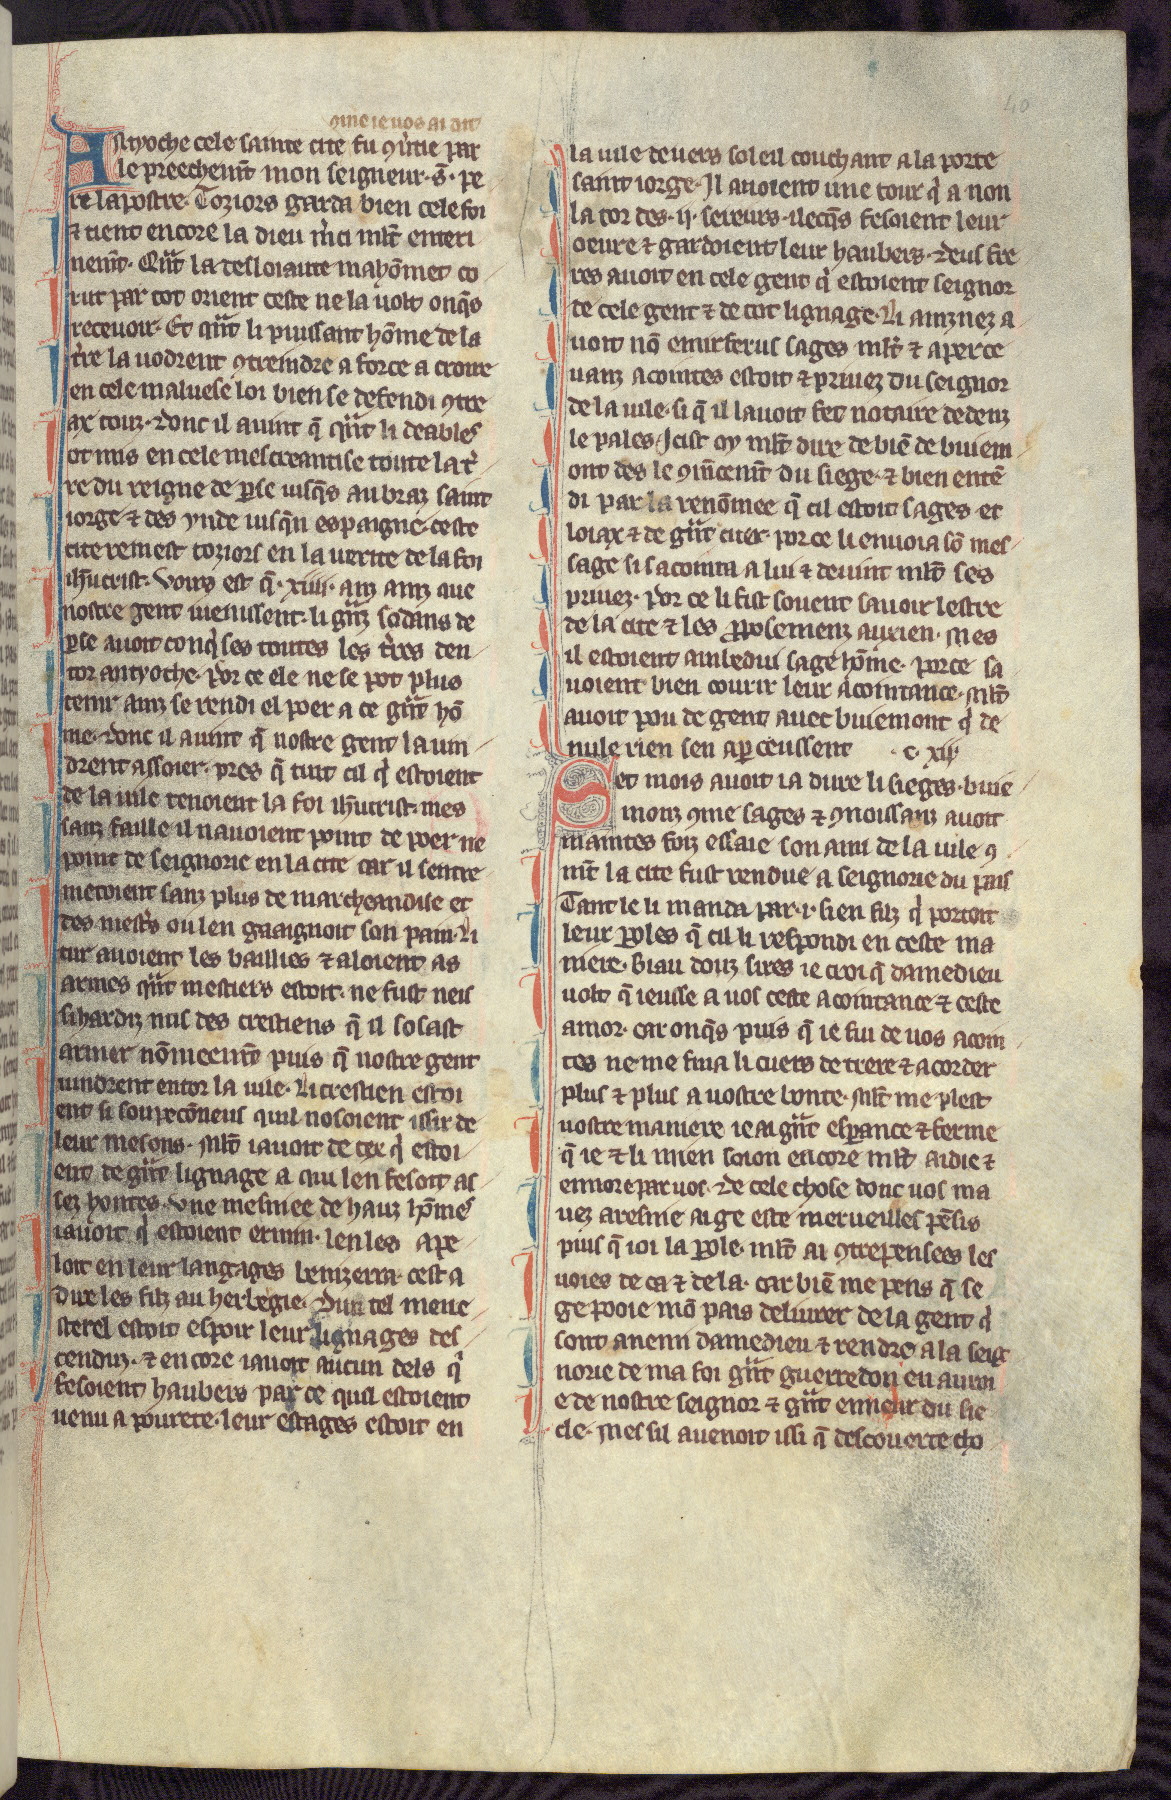 9me ie uos ai dit
40
Antyoche cele sainte cite fu 9u̾tie par
le preechem̄t mon seigneur · s̄ · pe
re lapostre · Toziors garda bien cele foi
⁊ tient encore la dieu m̾ci ml̄t enteri
nem̄t · Qūt la desloiaute mahōmet co
rut par tot orient ceste ne la uolt onq̄s
receuoir · Et qūt li puissant hōme de la
t̾re la uodrent 9treindre a force a croire
en cele maluese loi bien se defendi 9tre
ax touz · Donc il auint q̄ qūt li deables
ot mis en cele mescreantise toute la t̾
re du reigne de ꝑse iusq̄s au braz saint
iorge ⁊ des ynde iusq̄n espaigne · ceste
cite remest toziors en la uerite de la foi
ih̄ucrist · Voirs est q̄ · xiiii · anz ainz que
nostre gent uenissent · li gn̄z sodans de
ꝑse auoit conq̾ses toutes les t̾res den
tor antyoche · Por ce ele ne se pot plus
tenir ainz se rendi el poer a ce gn̄t hō
me · Donc il auint q̄ nostre gent la uin
drent assoier · pres q̄ tuit cil q̾ estoient
de la uile tenoient la foi ih̄ucrist · mes
sanz faille il nauoient point de poer ne
point de seignorie en la cite car il sentre
metoient sanz plus de marcheandise et
des mest̾s ou len gaaignoit son pain · Li
tur auoient les baillies ⁊ aloient as
armes qūt mestiers estoit · ne fust neis
si hardiz nus des crestiens q̄ il sosast
armer nōmeem̄t puis q̄ nostre gent
uindrent entor la uile · Li crestien estoi
ent si soupecōneus quil nosoient issir de
leur mesons · Ml̄t iauoit de cex q̾ estoi
ent de gn̄t lignage a cui len fesoit as
sez hontes · Vne mesniee de hauz hōmes
iauoit q̾ estoient ermin · len les ape
loit en leur langages benizerra · cest a
dire les filz au herbegie · Dun tel mene
sterel estoit espoir leur lignages des
cenduz · ⁊ encore iauoit aucun dels q̾
fesoient haubers par ce quil estoient
uenu a pourete · leur estages estoit en
la uile deuers soleil couchant a la porte
saint iorge · Il auoient une tour q̾ a non
la tor des · ii · sereurs · ilecq̄s fesoient leur
oeure ⁊ gardoient leur haubers · Deus fre
res auoit en cele gent q̾ estoient seignor
de cele gent ⁊ de tot lignage · Li ainznez a
uoit nō emirferus sages ml̄t ⁊ aperce
uanz acointes estoit ⁊ priuez du seignor
de la uile · si q̄ il lauoit fet notaire dedenz
le pales · Icist oy ml̄t dire de biē de buiem
ont des le 9m̄cem̄t du siege · ⁊ bien entē
di par la renōmee q̄ cil estoit sages et
loiax ⁊ de gn̄t cuer · por ce li enuoia sō mes
sage si sacointa a lui ⁊ deuint ml̄t ses
priuez · Por ce li fist souent sauoir lestre
de la cite ⁊ les ꝓposemenz aurien · Mes
il estoient ambedui sage hōme · por ce sa
uoient bien courir leur acointance · Ml̄t
auoit pou de gent auec buiemont q̾ de
nule rien sen aꝑceussent · c · xiiii
Set mois auoit ia dure li sieges · buie
monz 9me sages ⁊ 9noissanz auoit
maintes foiz essaie son ami de la uile 9
m̄t la cite fust rendue a seignorie du pais
Tant le li manda par · i · sien filz q̾ portoit
leur ꝑoles q̄ cil li respondi en ceste ma
niere · Biau douz sires ie croi q̄ damedieu
uolt q̄ ieusse a uos ceste acointance ⁊ ceste
amor · car onq̄s puis q̄ ie fui de uos acoin
tes ne me fina li cuers de trere ⁊ acorder
plus ⁊ plus a uostre bonte · Ml̄t me plest
uostre maniere ie ai gn̄t esꝑance ⁊ ferme
q̄ ie ⁊ li mien soion encore ml̄t aidie ⁊
ennore par uos · De cele chose donc uos ma
uez aresnie ai ge este merueilles pēsis
puis q̄ ioi la ꝑole · ml̄t ai 9trepensees les
uoies de ca ⁊ de la · car biē me pens q̄ se
ge pooie mō pais deliurer de la gent q̾
sont anemi damedieu ⁊ rendre a la seig
norie de ma foi gn̄t guerredon en auroi
e de nostre seignor ⁊ gn̄t enneur du sie
cle · Mes sil auenoit issi q̄ descouerte cho